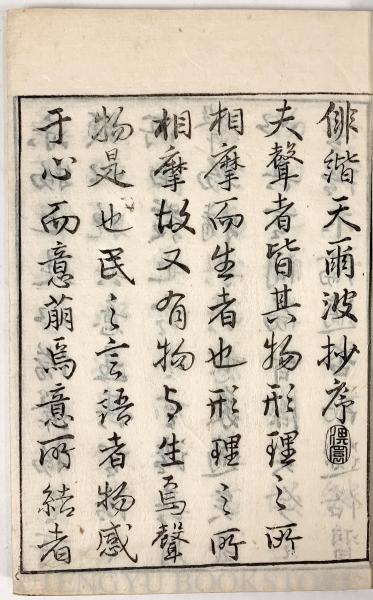 俳諧天爾波抄序
夫聲者皆其物形理之所
相摩而生者也形理之所
相摩故又有物与生焉聲
物是也民之言語者物感
于心而意萠焉意所結者
TENGYU BOOKSTORE